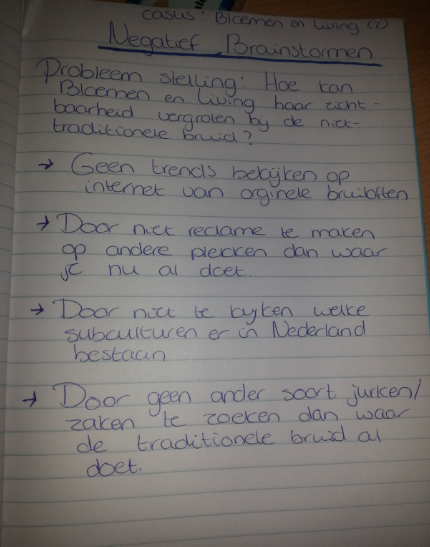 casus: Bloemen en Living (2)
Negatief Brainstormen
Probleem stelling: Hoe kan
Bloemen en Living haar zicht-
baarheid vergroten by de niet-
traditionele bruid?
→ Geen trends bekijken op
internet van orginele bruiloften
→ Door niet reclame te maken
op andere plekken dan waar
je nu al doet.
→ Door niet te kyken welke
subculturen er in Nederland
bestaan
→ Door geen ander soort jurken/
zaken te zoeken dan waar
de traditionele bruid al
doet.